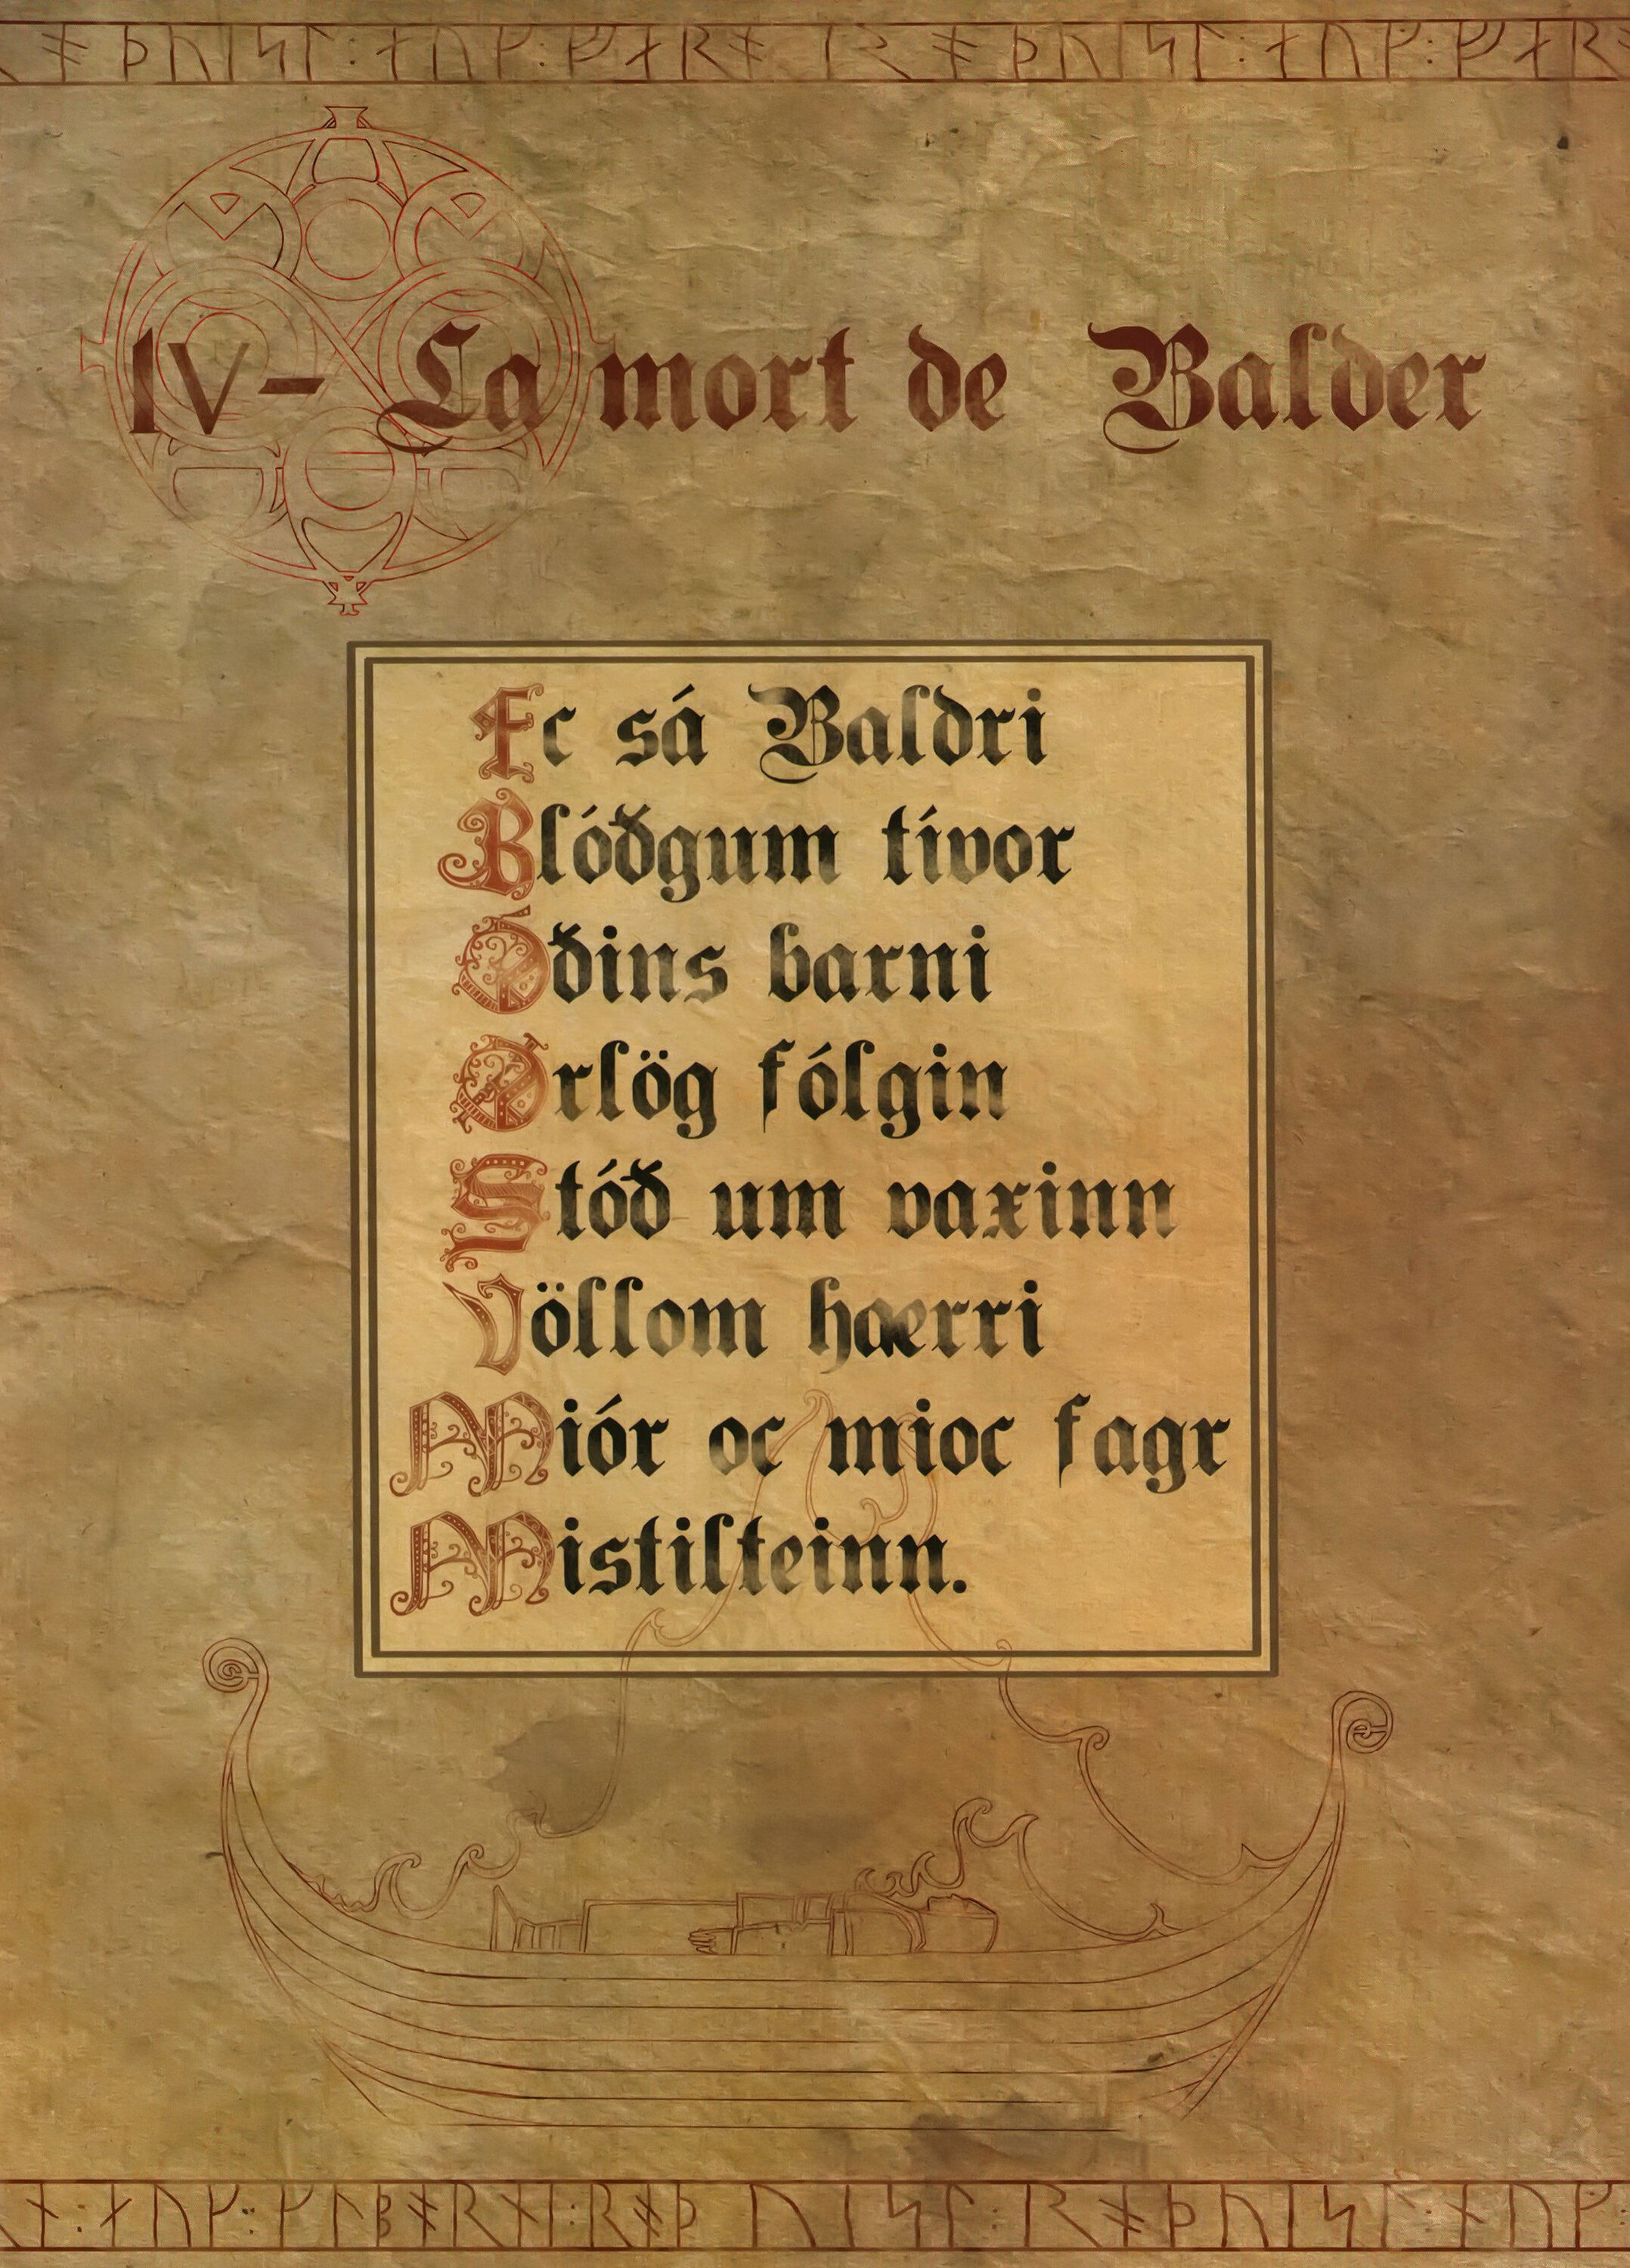 IV- La mort de Balder
Ec sá Baldri
Blóðgum tívor
Óðins barni
Örlög fólgin
Stóð um vaxinn
Völlom hærri
Miór oc mioc fagr
Mistilteinn.